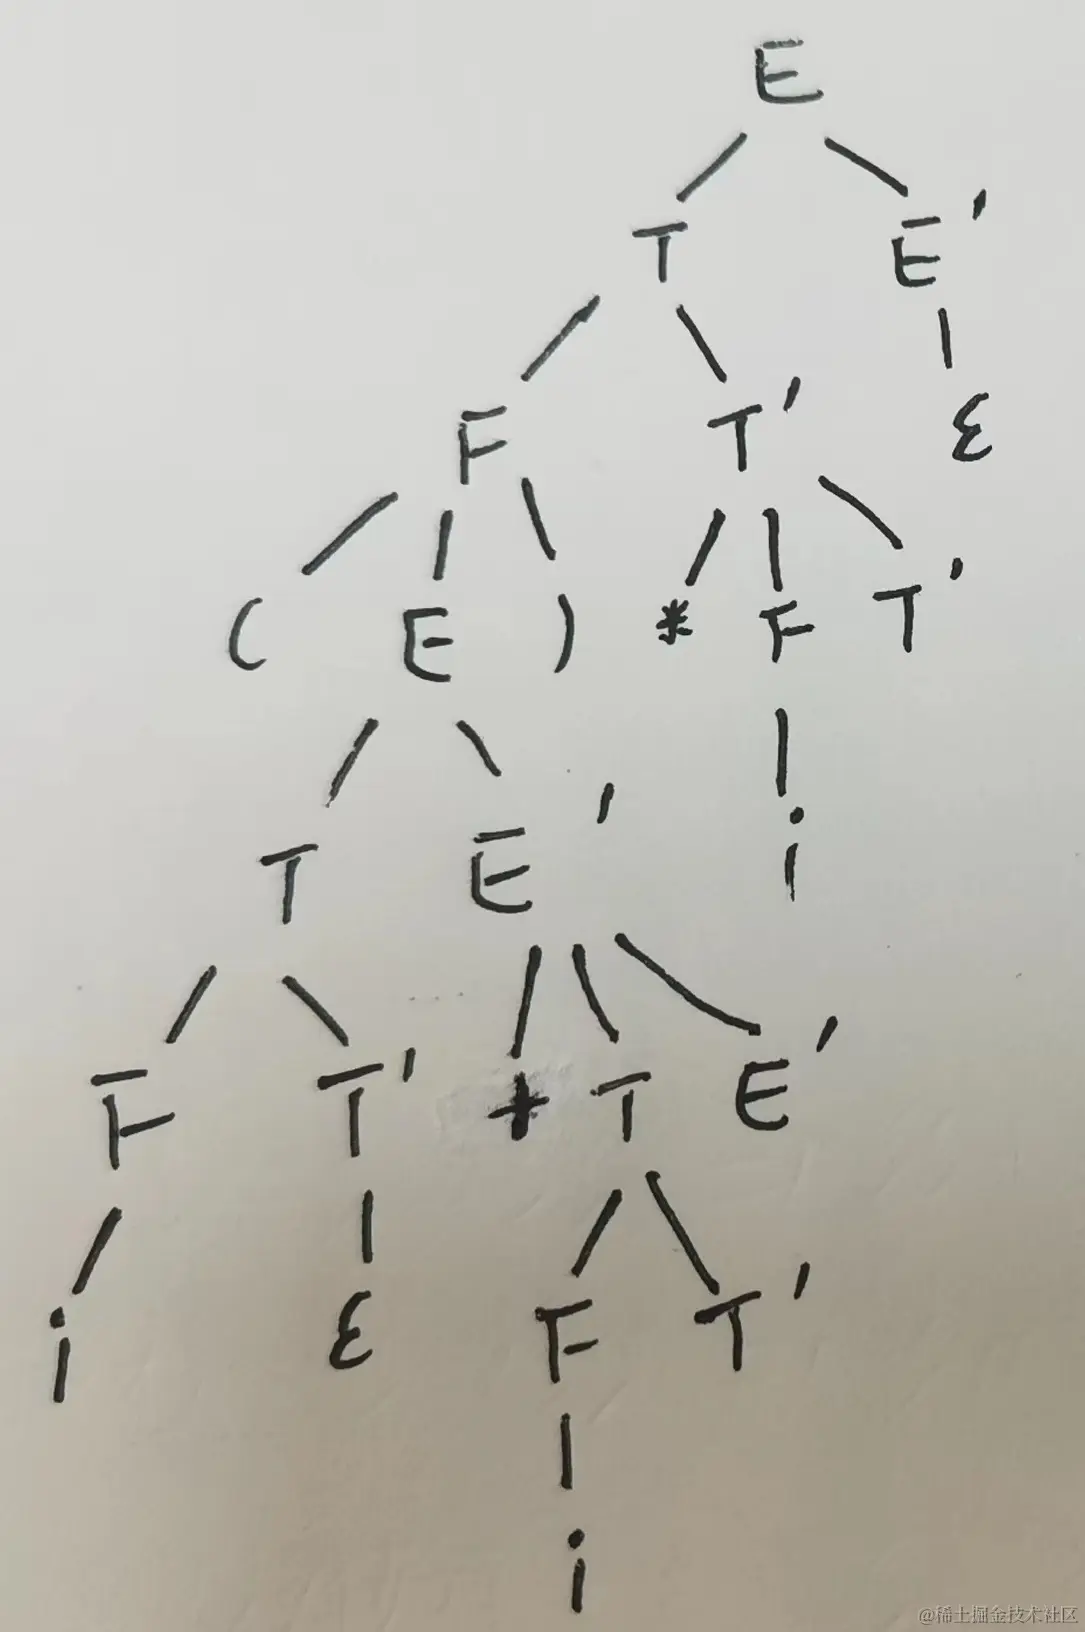 E
T E'
F T' ε
( E ) * F T'
T E' i
F T' + T E'
i ε F T'
i
@稀土掘金技术社区